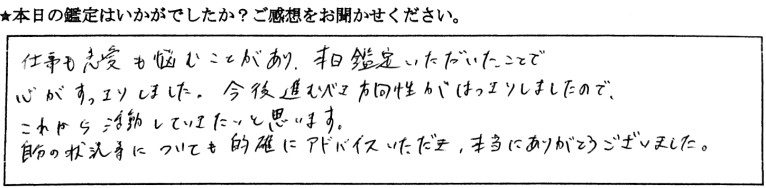 ★本日の鑑定はいかがでしたか？ご感想をお聞かせください。
仕事も恋愛も悩むことがあり、本日鑑定いただいたことで
心がすっきりしました。今後進むべき方向性がはっきりしましたので、
これから活動していきたいと思います。
自分の状況等についても的確にアドバイスいただき、本当にありがとうございました。